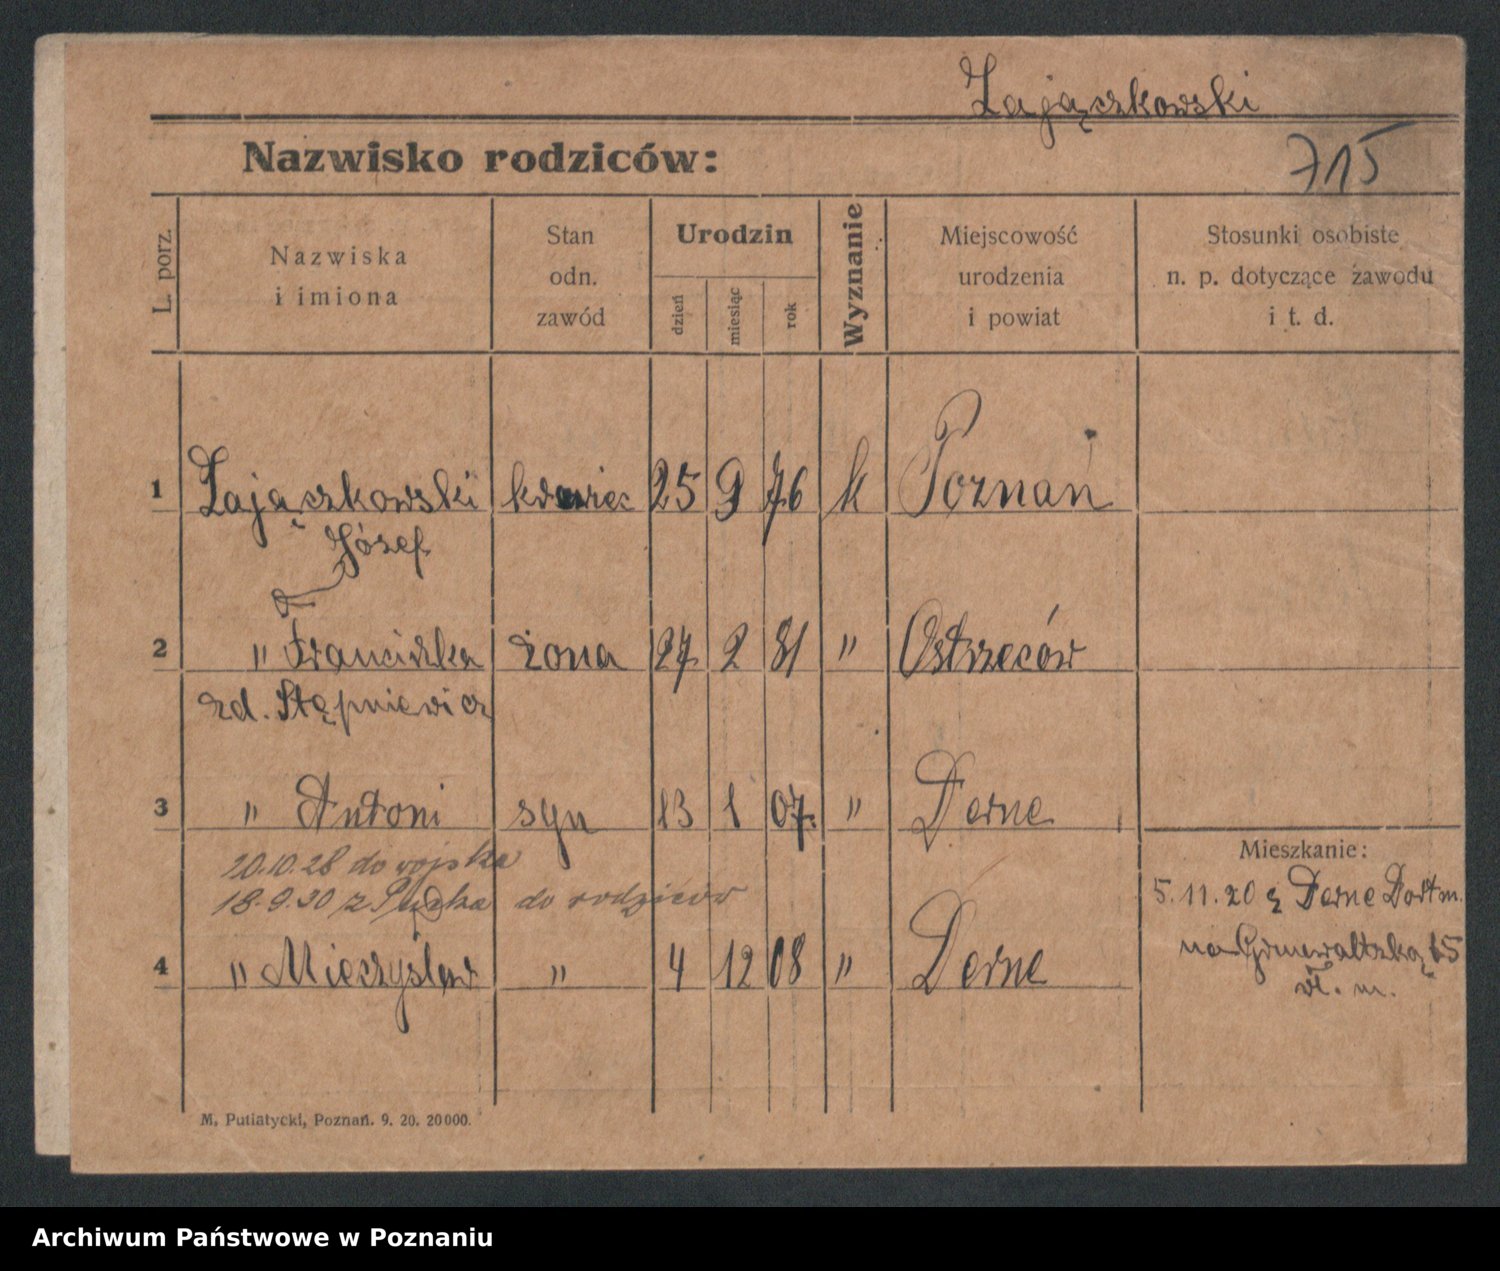 Zajączkowski
Nazwisko rodziców:
715
L. porz.
Nazwiska
i imiona
Stan
odn.
zawód
Urodzin
dzień
miesiąc
rok
Wyznanie
Miejscowość
urodzenia
i powiat
Stosunki osobiste
n. p. dotyczące zawodu
i t. d.
1 Zajączkowski krawiec 25 9 76 k Poznań
Józef
2 " Franciszka żona 27 2 81 " Ostrzeców
zd. Stępniewicz
3 " Antoni syn 13 1 07. " Derne
20.10.28 do wojska
18.9.30 z Pucka do rodziców
4 " Mieczysław " 4 12 08 " Derne
Mieszkanie:
5.11.20 z Derne Dortm.
na Grunwaltzką
M. Putiatycki, Poznań. 9. 20. 20000.
Archiwum Państwowe w Poznaniu